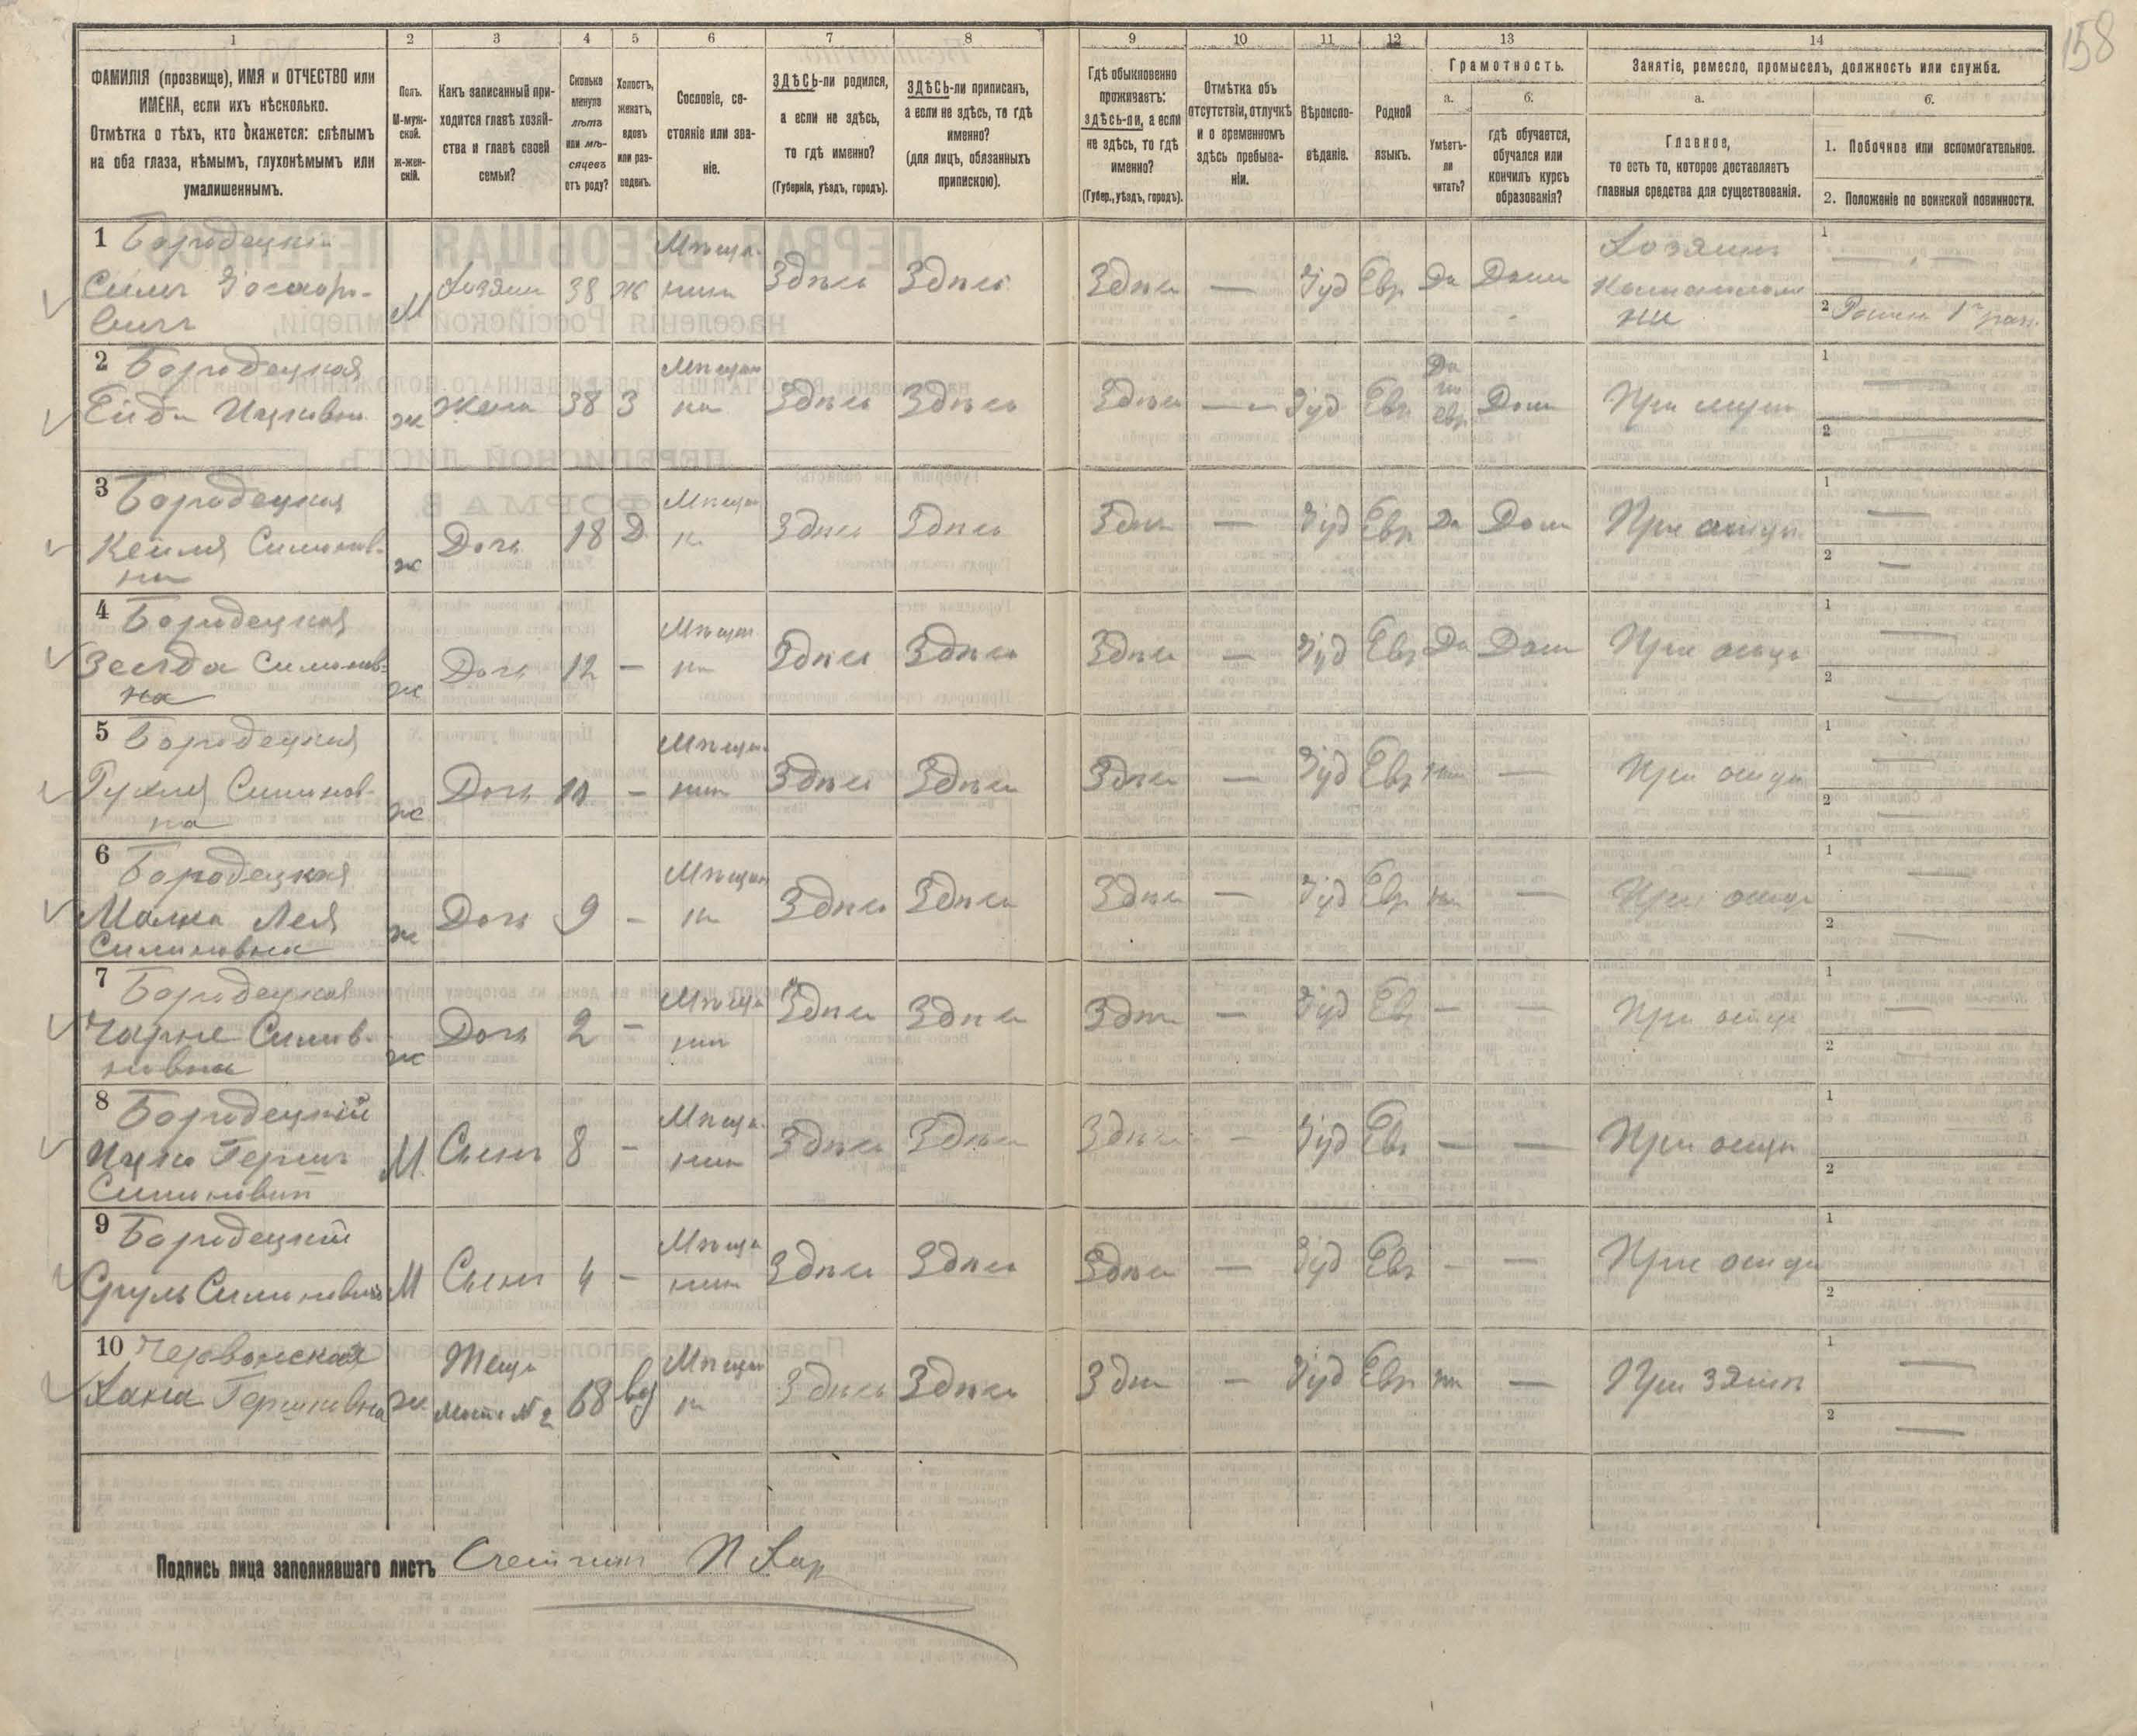 158
1 2 3 4 5 6 7 8 9 10 11 12 13 14
ФАМИЛІЯ (прозвище), ИМЯ и ОТЧЕСТВО или
ИМЕНА, если ихъ нѣсколько.
Отмѣтка о тѣхъ, кто окажется: слѣпымъ
на оба глаза, нѣмымъ, глухонѣмымъ или
умалишеннымъ.
Полъ.
М-муж-
ской.
Ж-жен-
скій.
Какъ записанный при-
ходится главѣ хозяй-
ства и главѣ своей
семьи?
Сколько
минуло
лѣтъ
или мѣ-
сяцевъ
отъ роду?
Холостъ,
женатъ,
вдовъ
или раз-
веденъ.
Сословіе, со-
стояніе или зва-
ніе.
ЗДѢСЬ-ли родился,
а если не здѣсь,
то гдѣ именно?
(Губернія, уѣздъ, городъ).
ЗДѢСЬ-ли приписанъ,
а если не здѣсь, то гдѣ
именно?
(для лицъ, обязанныхъ
припискою).
Гдѣ обыкновенно
проживаетъ:
здѣсь-ли, а если
не здѣсь, то гдѣ
именно?
(Губер., уѣздъ, городъ).
Отмѣтка объ
отсутствіи, отлучкѣ
и о временномъ
здѣсь пребыва-
ніи.
Вѣроиспо-
вѣданіе.
Родной
языкъ.
Грамотность.
а.
Умѣетъ-
ли
читать?
б.
гдѣ обучается,
обучался или
кончилъ курсъ
образованія?
Занятіе, ремесло, промыселъ, должность или служба.
а.
Главное,
то есть то, которое доставляетъ
главныя средства для существованія.
б.
1. Побочное или вспомогательное.
2. Положеніе по воинской повинности.
1 Бородецкій
М Хозяинъ 38 Ж Мѣща-
нинъ Здѣсь Здѣсь Здѣсь — Іуд Евр Да Дома Хозяинъ
1 —
2
2 Бородецкая
Ейда Ицковна ж Жена 38 З Мѣщан
ка Здѣсь Здѣсь Здѣсь — Іуд Евр Да
по
евр Дома При мужѣ
1 —
2 —
3 Бородецкая
Кейля Симонов-
на ж Дочь 18 Д Мѣщан
ка Здѣсь Здѣсь Здѣсь — Іуд Евр Да Дома При отцѣ
1 —
2 —
4 Бородецкая
Зелда Симонов-
на ж Дочь 12 — Мѣщан
ка Здѣсь Здѣсь Здѣсь — Іуд Евр Да Дома При отцѣ
1 —
2 —
5 Бородецкая
Рухля Симонов-
на ж Дочь — Мѣщан-
Здѣсь Здѣсь Здѣсь — Іуд Евр нѣт — При отцѣ
1 —
2 —
6 Бородецкая
Малка Лея
Симоновна ж Дочь 9 - Мѣщан
ка Здѣсь Здѣсь Здѣсь — Іуд Евр нѣт — При отцѣ
1 —
2 —
7 Бородецкая
Чарне
ж Дочь 2 — Мѣща
Здѣсь Здѣсь Здѣсь — Іуд Евр — — При отцѣ
1 —
2 —
8 Бородецкій
Ицко Гершъ
Симоновичъ М Сынъ 8 - Мѣща-
нинъ Здѣсь Здѣсь Здѣсь — Іуд Евр — — При отцѣ
1
2
9 Бородецкій
Сруль Симоновичъ М Сынъ 4 — Мѣща
нинъ Здѣсь Здѣсь Здѣсь — Іуд Евр — — При отцѣ
1
2
10 Червонская
Хана Гершковна ж Теща
мать № 2 68 вд Мѣщан
ка Здѣсь Здѣсь Здѣсь — Іуд Евр нѣт — При зятѣ
1 —
2 —
Подпись лица заполнявшаго листъ Счетчикъ